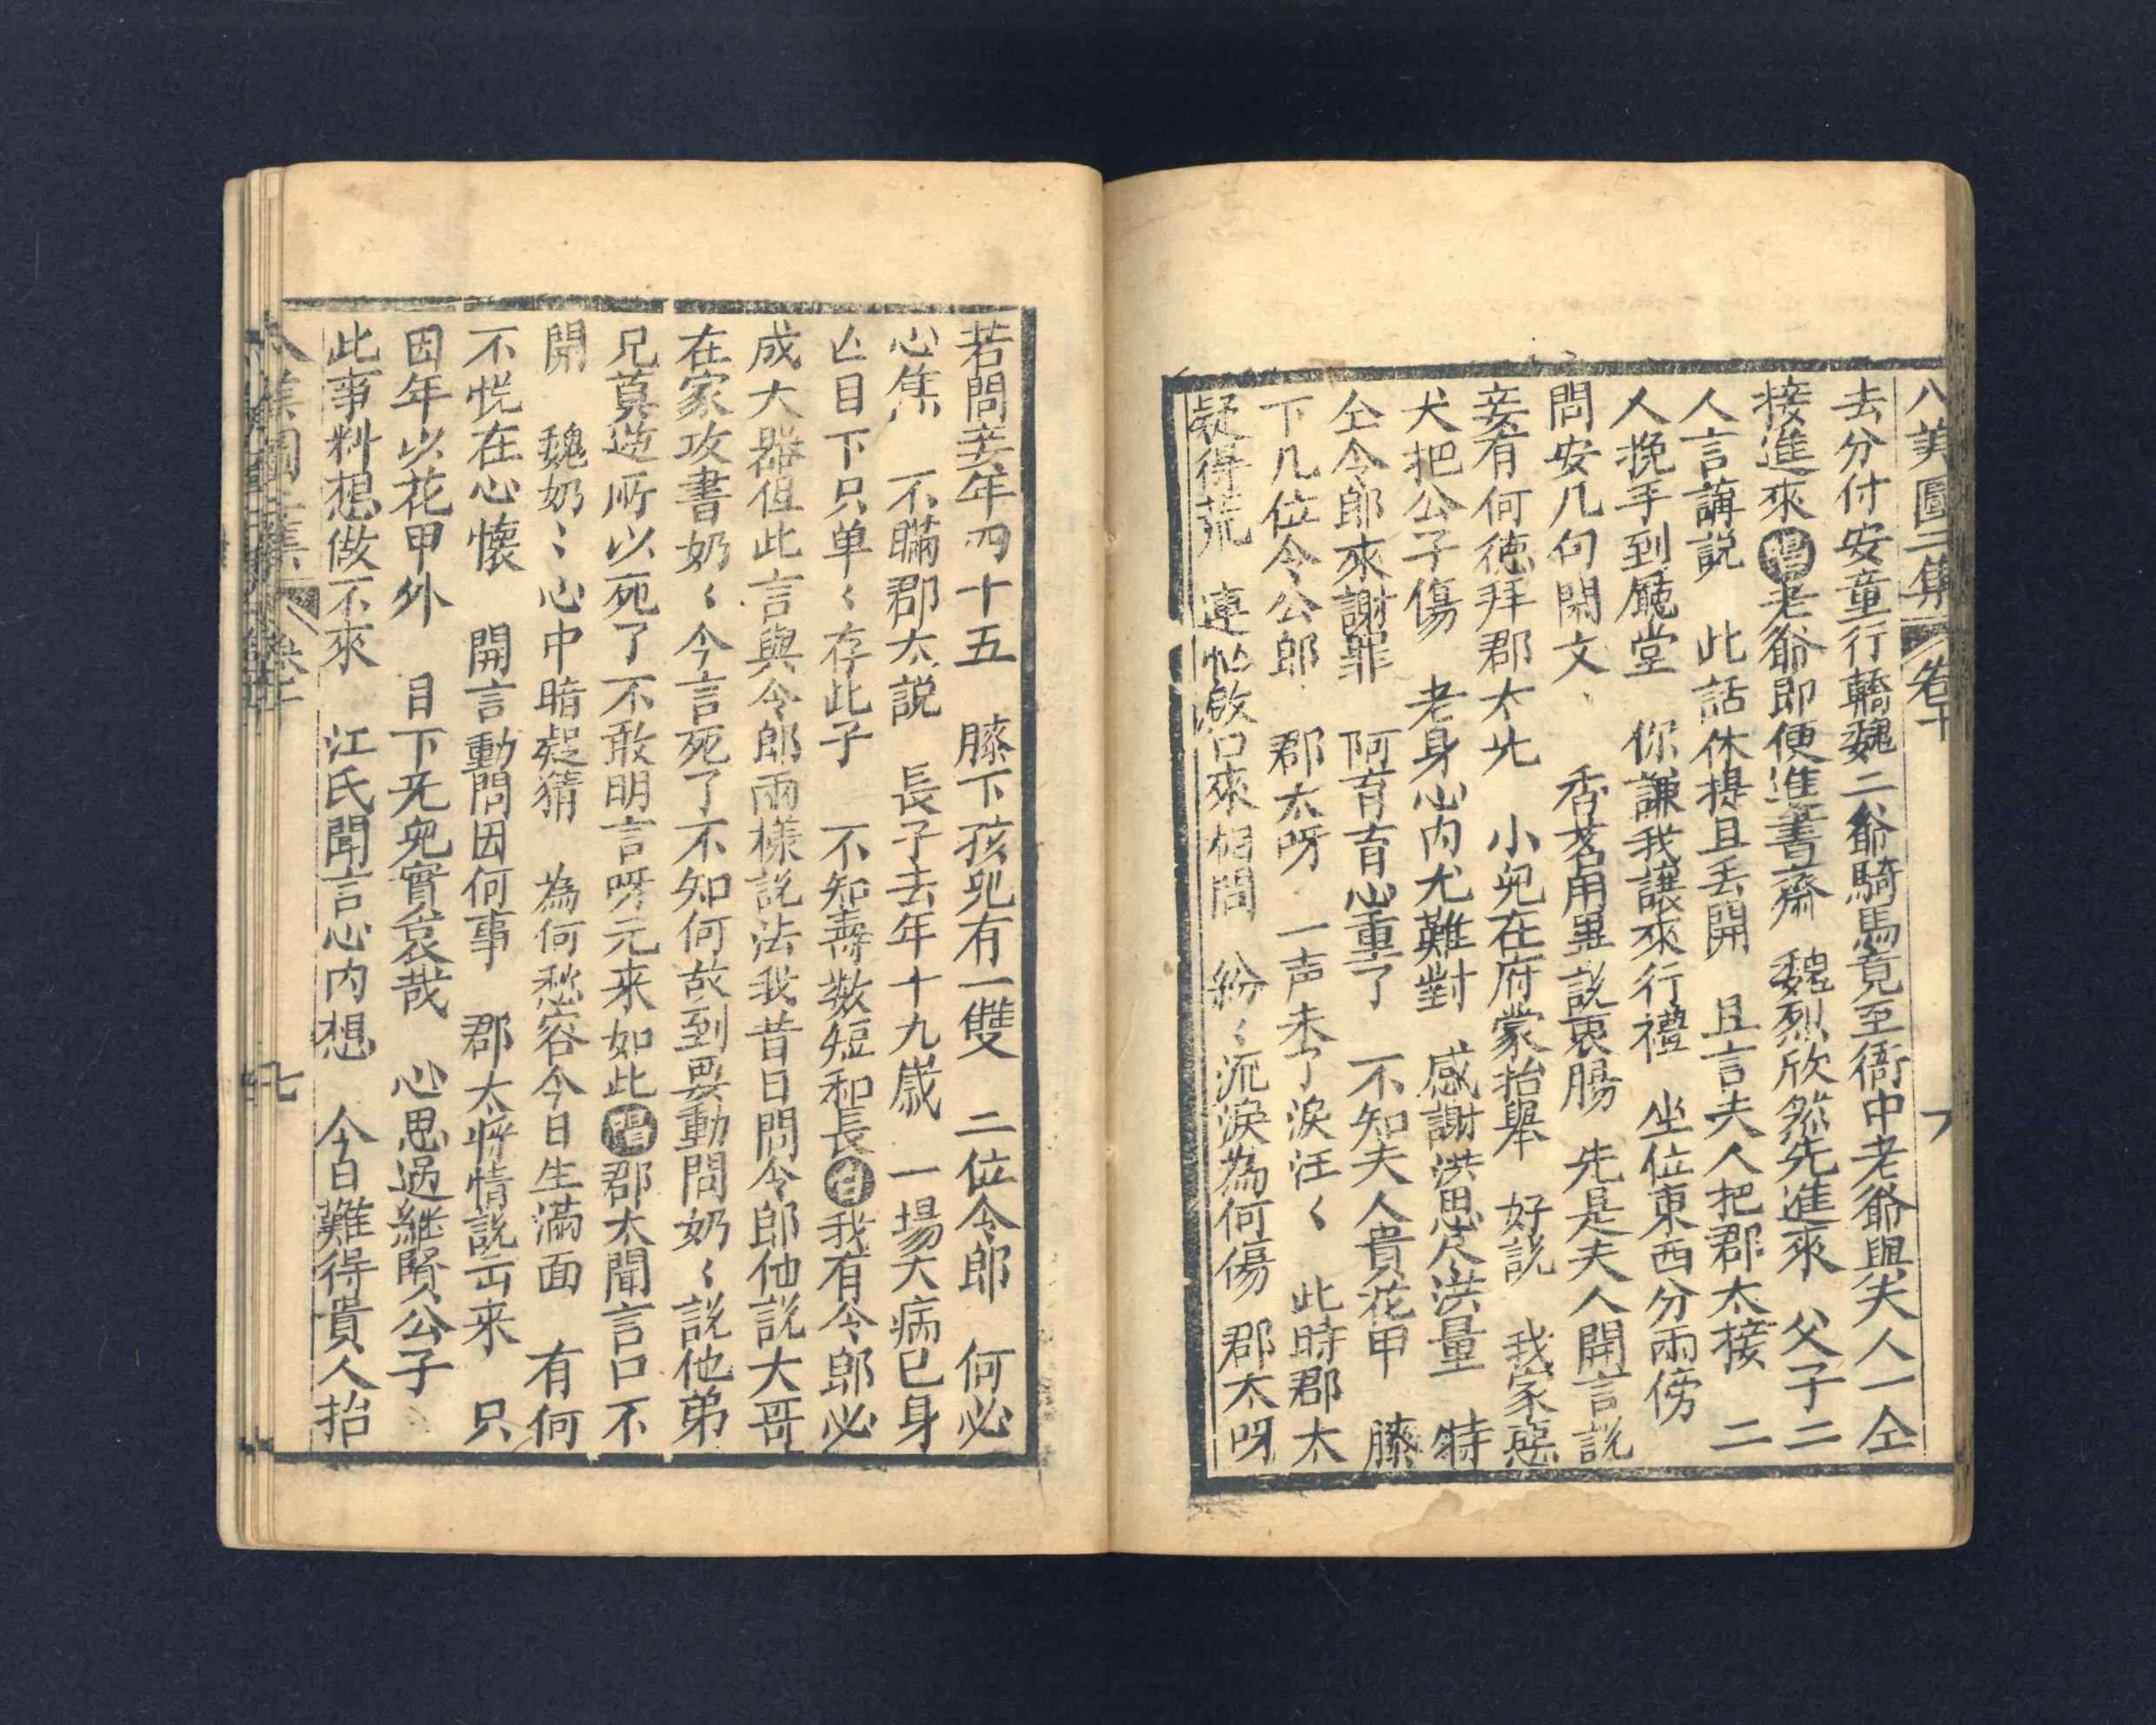 八美圖二集 卷十
去分付安童行轎魏二爺騎馬竟至衙中老爺與夫人一仝
接進來唱老爺即便進書齋 魏烈欣然先進來 父子二
人言講説 此話休提且丢開 且言夫人把郡太接 二
人挽手到廳堂 你謙我讓來行禮 坐位東西分兩傍
問安几句閑文、 香茗用畢説衷腸 先是夫人開言説
妾有何德拜郡太 小兒在府蒙抬舉 好説 我家惡
犬把公子傷 老身心内尤難對 感謝洪恩尽洪量 特
仝令郎來謝罪 阿育育心重了 不知夫人貴花甲 膝
下几位令公郎 郡太呀 一声未了淚汪〱 此時郡太
疑得荒 連忙啟口來相問 紛〱流淚為何傷 郡太呀
若問妾年四十五 膝下孩兒有一雙 二位令郎 何必
心焦 不瞞郡太説 長子去年十九歲 一場大病已身
亾目下只单〱存此子 不知壽数短和長白我有令郎必
成大器但此言與令郎兩樣説法我昔日問令郎他説大哥
在家攻書奶〱今言死了不知何故到要動問奶〱説他弟
兄莫逆所以死了不敢明言呀元来如此唱郡太聞言口不
開 魏奶〻心中暗疑猜 為何愁容今日生滿面 有何
不悦在心懷 開言動問因何事 郡太将情説出来 只
因年以花甲外 目下旡兒實哀哉 心思過継賢公子
此事料想做不來 江氏聞言心内想 今日難得貴人抬
七